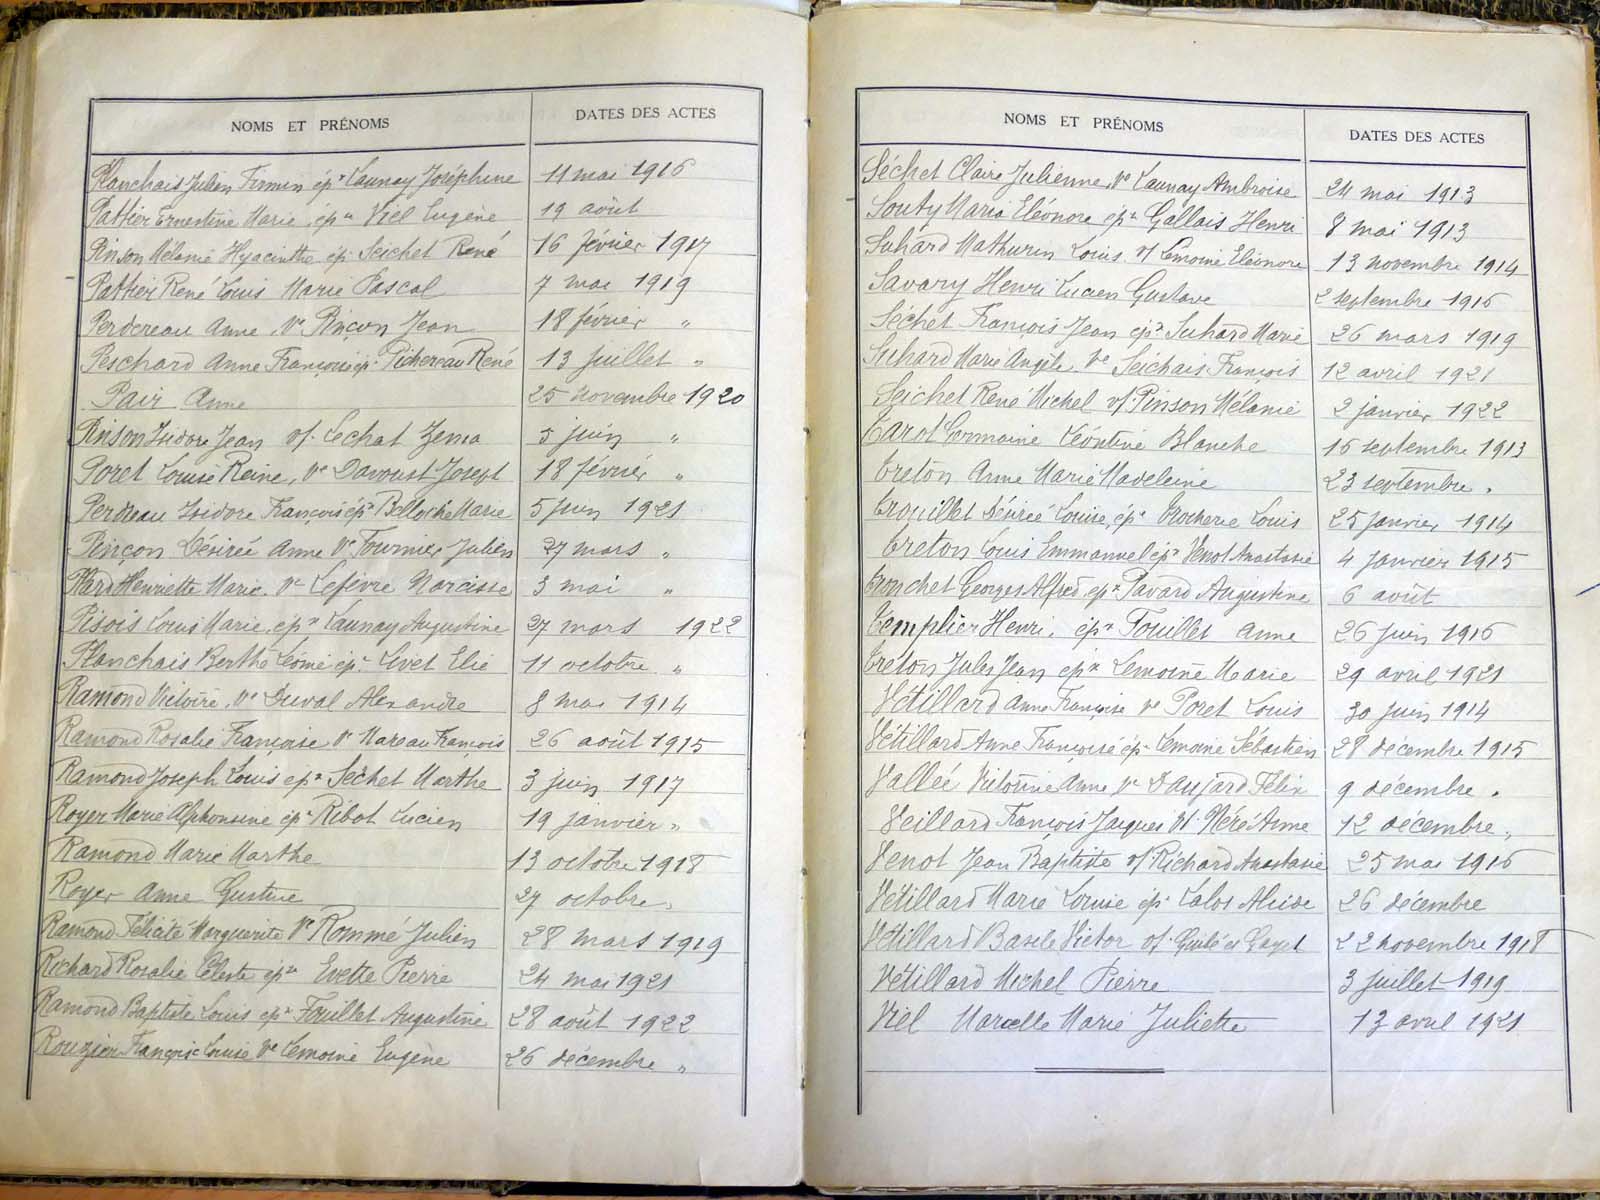 NOMS ET PRÉNOMS DATES DES ACTES
Planchais Julien Firmin épx Launay Joséphine 11 mai 1916
Pattier Ernestine Marie, épse Viel Eugène 19 août
Pinson Mélanie Hyacinthe ép. Seichet René 16 février 1917
Pattier René Louis Marie Pascal 7 mai 1919
Perdereau Anne, Ve Pinçon Jean 18 février "
Peschard Anne Françoise ép. Pichereau René 13 juillet "
Pair Anne 25 novembre 1920
Pinson Isidore Jean vf. Lechat Zema 5 juin "
Poret Louise Reine, Ve Davoust Joseph 18 février "
Perdreau Isidore François épx Belloche Marie 5 juin 1921
Pinçon Désirée Anne Ve Fournier Julien 27 mars "
Henriette Marie, Ve Lefèvre Narcisse 3 mai "
Pisois Louis Marie, épx Launay Augustine 27 mars 1922
Planchais Berthe Léonie ép. Livet Elie 11 octobre "
Ramond Victoire, Ve Duval Alexandre 8 mai 1914
Ramond Rosalie Françoise Ve Mareau François 26 août 1915
Ramond Joseph Louis epx Séchet Marthe 3 juin 1917
Royer Marie Alphonsine ép. Ribot Lucien 19 janvier "
Ramond Marie Marthe 13 octobre 1918
Royer Anne Gustine 27 octobre "
Ramond Félicité Marguerite Ve Rommé Julien 28 mars 1919
Richard Rosalie Céleste épse Evette Pierre 24 mai 1921
Ramond Baptiste Louis epx Fouillet Augustine 28 août 1922
Rouzier Françoise Louise Ve Lemoine Eugène 26 décembre "
NOMS ET PRÉNOMS DATES DES ACTES
Séchet Claire Julienne, Ve Launay Ambroise 24 mai 1913
Souty Maria Eléonore épse Gallais Henri 8 mai 1913
Suhard Mathurin Louis, vf Lemoine Eléonore 13 novembre 1914
Savary Henri Lucien Gustave 2 septembre 1916
Séchet François Jean épx Suhard Marie 26 mars 1919
Suhard Marie Angèle Ve Seichais François 12 avril 1921
Seichet René Michel vf. Pinson Mélanie 2 janvier 1922
Tarot Germaine Léontine Blanche 16 septembre 1913
Creton Anne Marie Madeleine 23 septembre "
Trouillet Désirée Louise, épse Brocherie Louis 25 janvier 1914
Creton Louis Emmanuel épx Venot Anastasie 4 janvier 1915
Tronchet Georges Alfred, epx Pavard Augustine 6 août
Templier Henri, épx Fouillet Anne 26 juin 1916
Creton Jules Jean épx Lemoine Marie 29 avril 1921
Vétillard Anne Françoise Ve Poret Louis 30 juin 1914
Vétillard Anne Françoise ép. Lemoine Sébastien 28 décembre 1915
Vallée Victorine Anne Ve Daujard Félix 9 décembre "
Veillard François Jacques Vf. Méré Anne 12 décembre "
Venot Jean Baptiste vf Richard Anastasie 25 mai 1916
Vétillard Marie Louise ép. Lalos 26 décembre
Vétillard Basile Victor vf. 22 novembre 1918
Vétillard Michel Pierre 3 juillet 1919
Viel Marcelle Marie Juliette 13 avril 1921